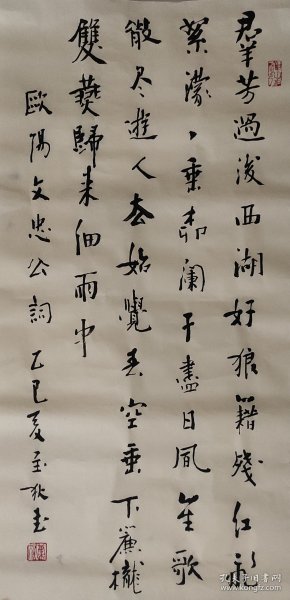 群芳過後西湖好狼籍殘紅飛
絮濛〻垂柳闌干盡日風笙歌
散尽遊人去始覺春空垂下簾櫳
雙燕歸來細雨中
歐陽文忠公詞 乙巳夏 書
孔夫子旧书网